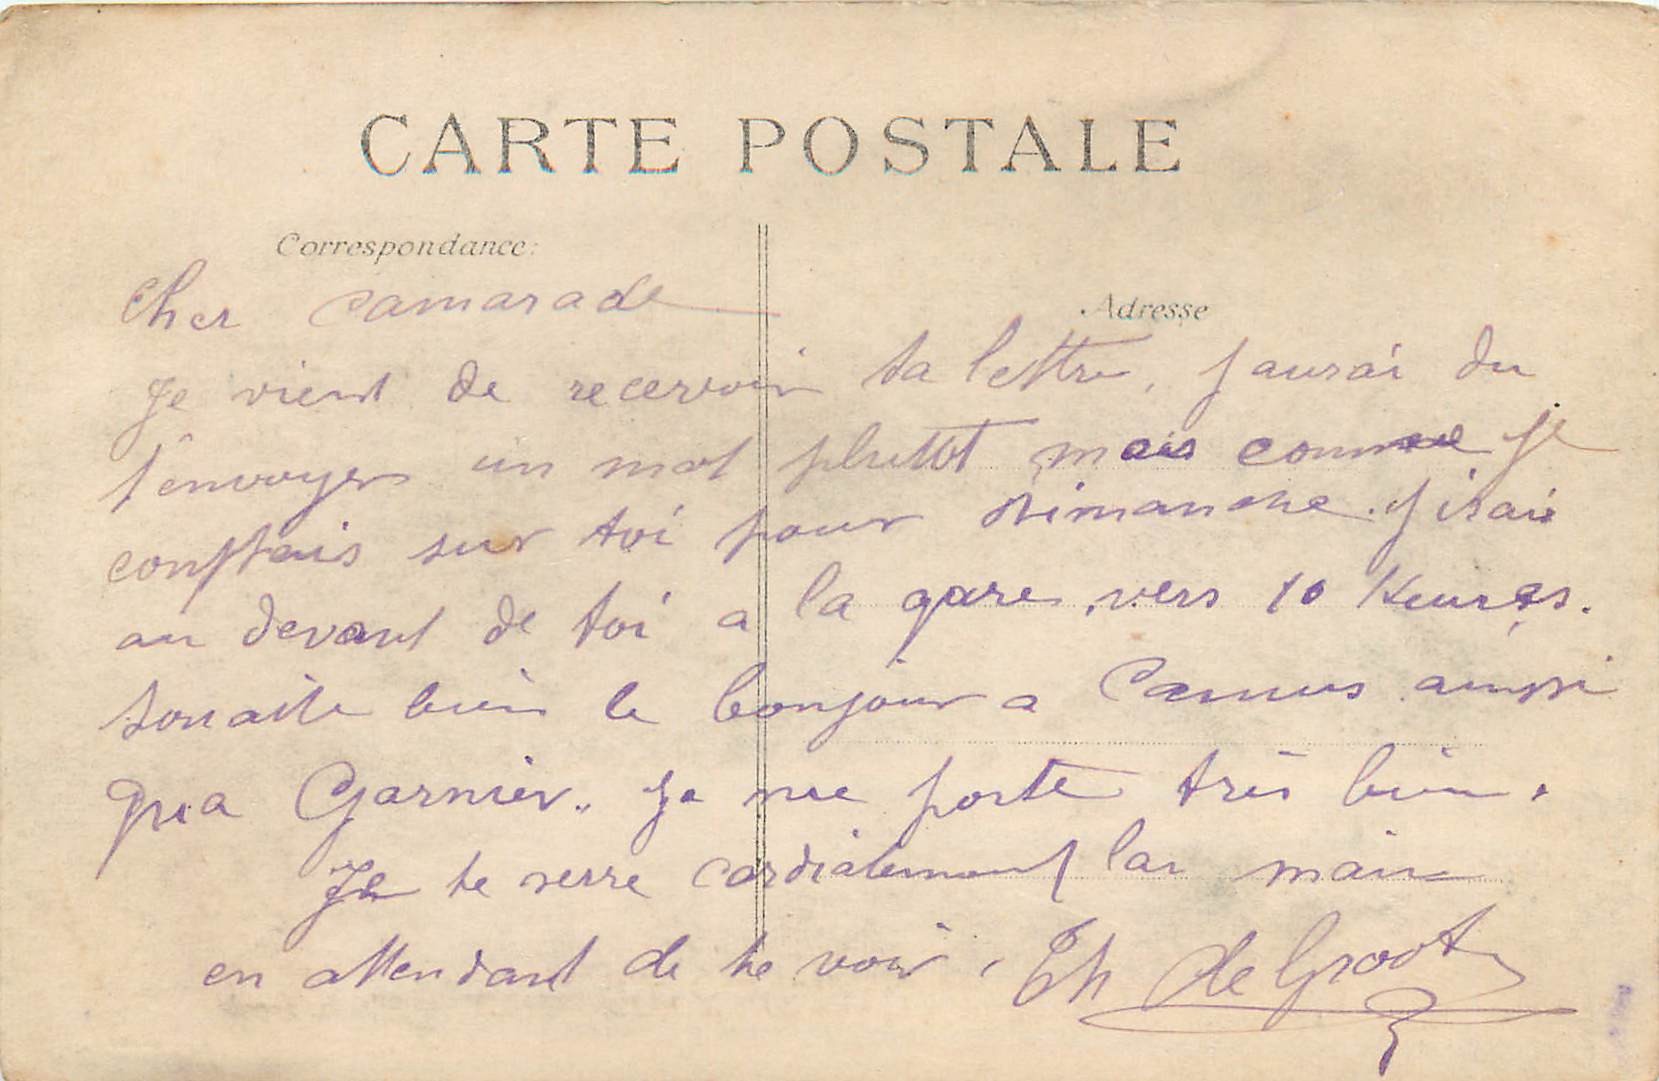 CARTE POSTALE
Correspondance:
Adresse
Cher camarade
Je vient de recervoir ta lettre, j aurai du
t'envoyer un mot plutot mais comme je
comptais sur toi pour Dimanche. j irai
au devant de toi a la gare, vers 10 Heures.
souaite bien le bonjour a Camus ainssi
qu a Garnier.. Je me porte très bien.
Je te serre cordialement la main
en attendant de te voir. Th de Groot